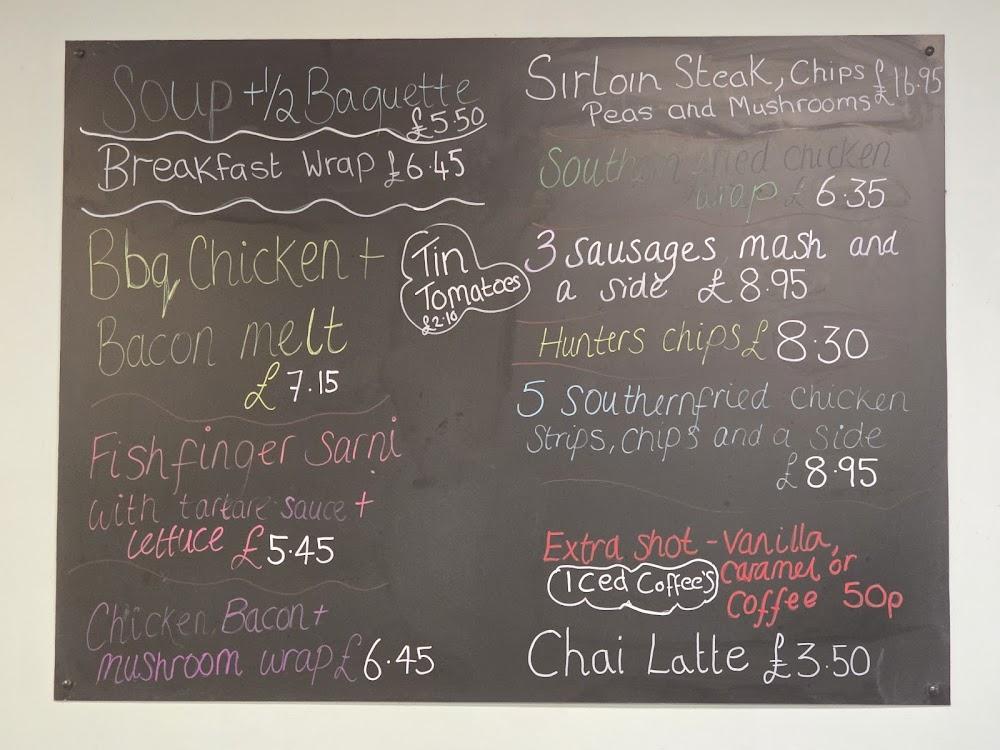 Soup + 1/2 Baguette
£5.50
Breakfast Wrap £6.45
Bbq Chicken +
Bacon melt
£7.15
Tin
Tomatoes
£2.10
Fishfinger Sarni
with tartare sauce +
lettuce £5.45
Chicken, Bacon +
mushroom wrap £6.45
Sirloin Steak, Chips £16.95
Peas and Mushrooms
Southern fried chicken
wrap £6.35
3 sausages mash and
a side £8.95
Hunters chips £8.30
5 Southernfried chicken
Strips, chips and a side
£8.95
Extra shot - Vanilla,
Caramel or
Coffee 50p
Iced Coffee's
Chai Latte £3.50